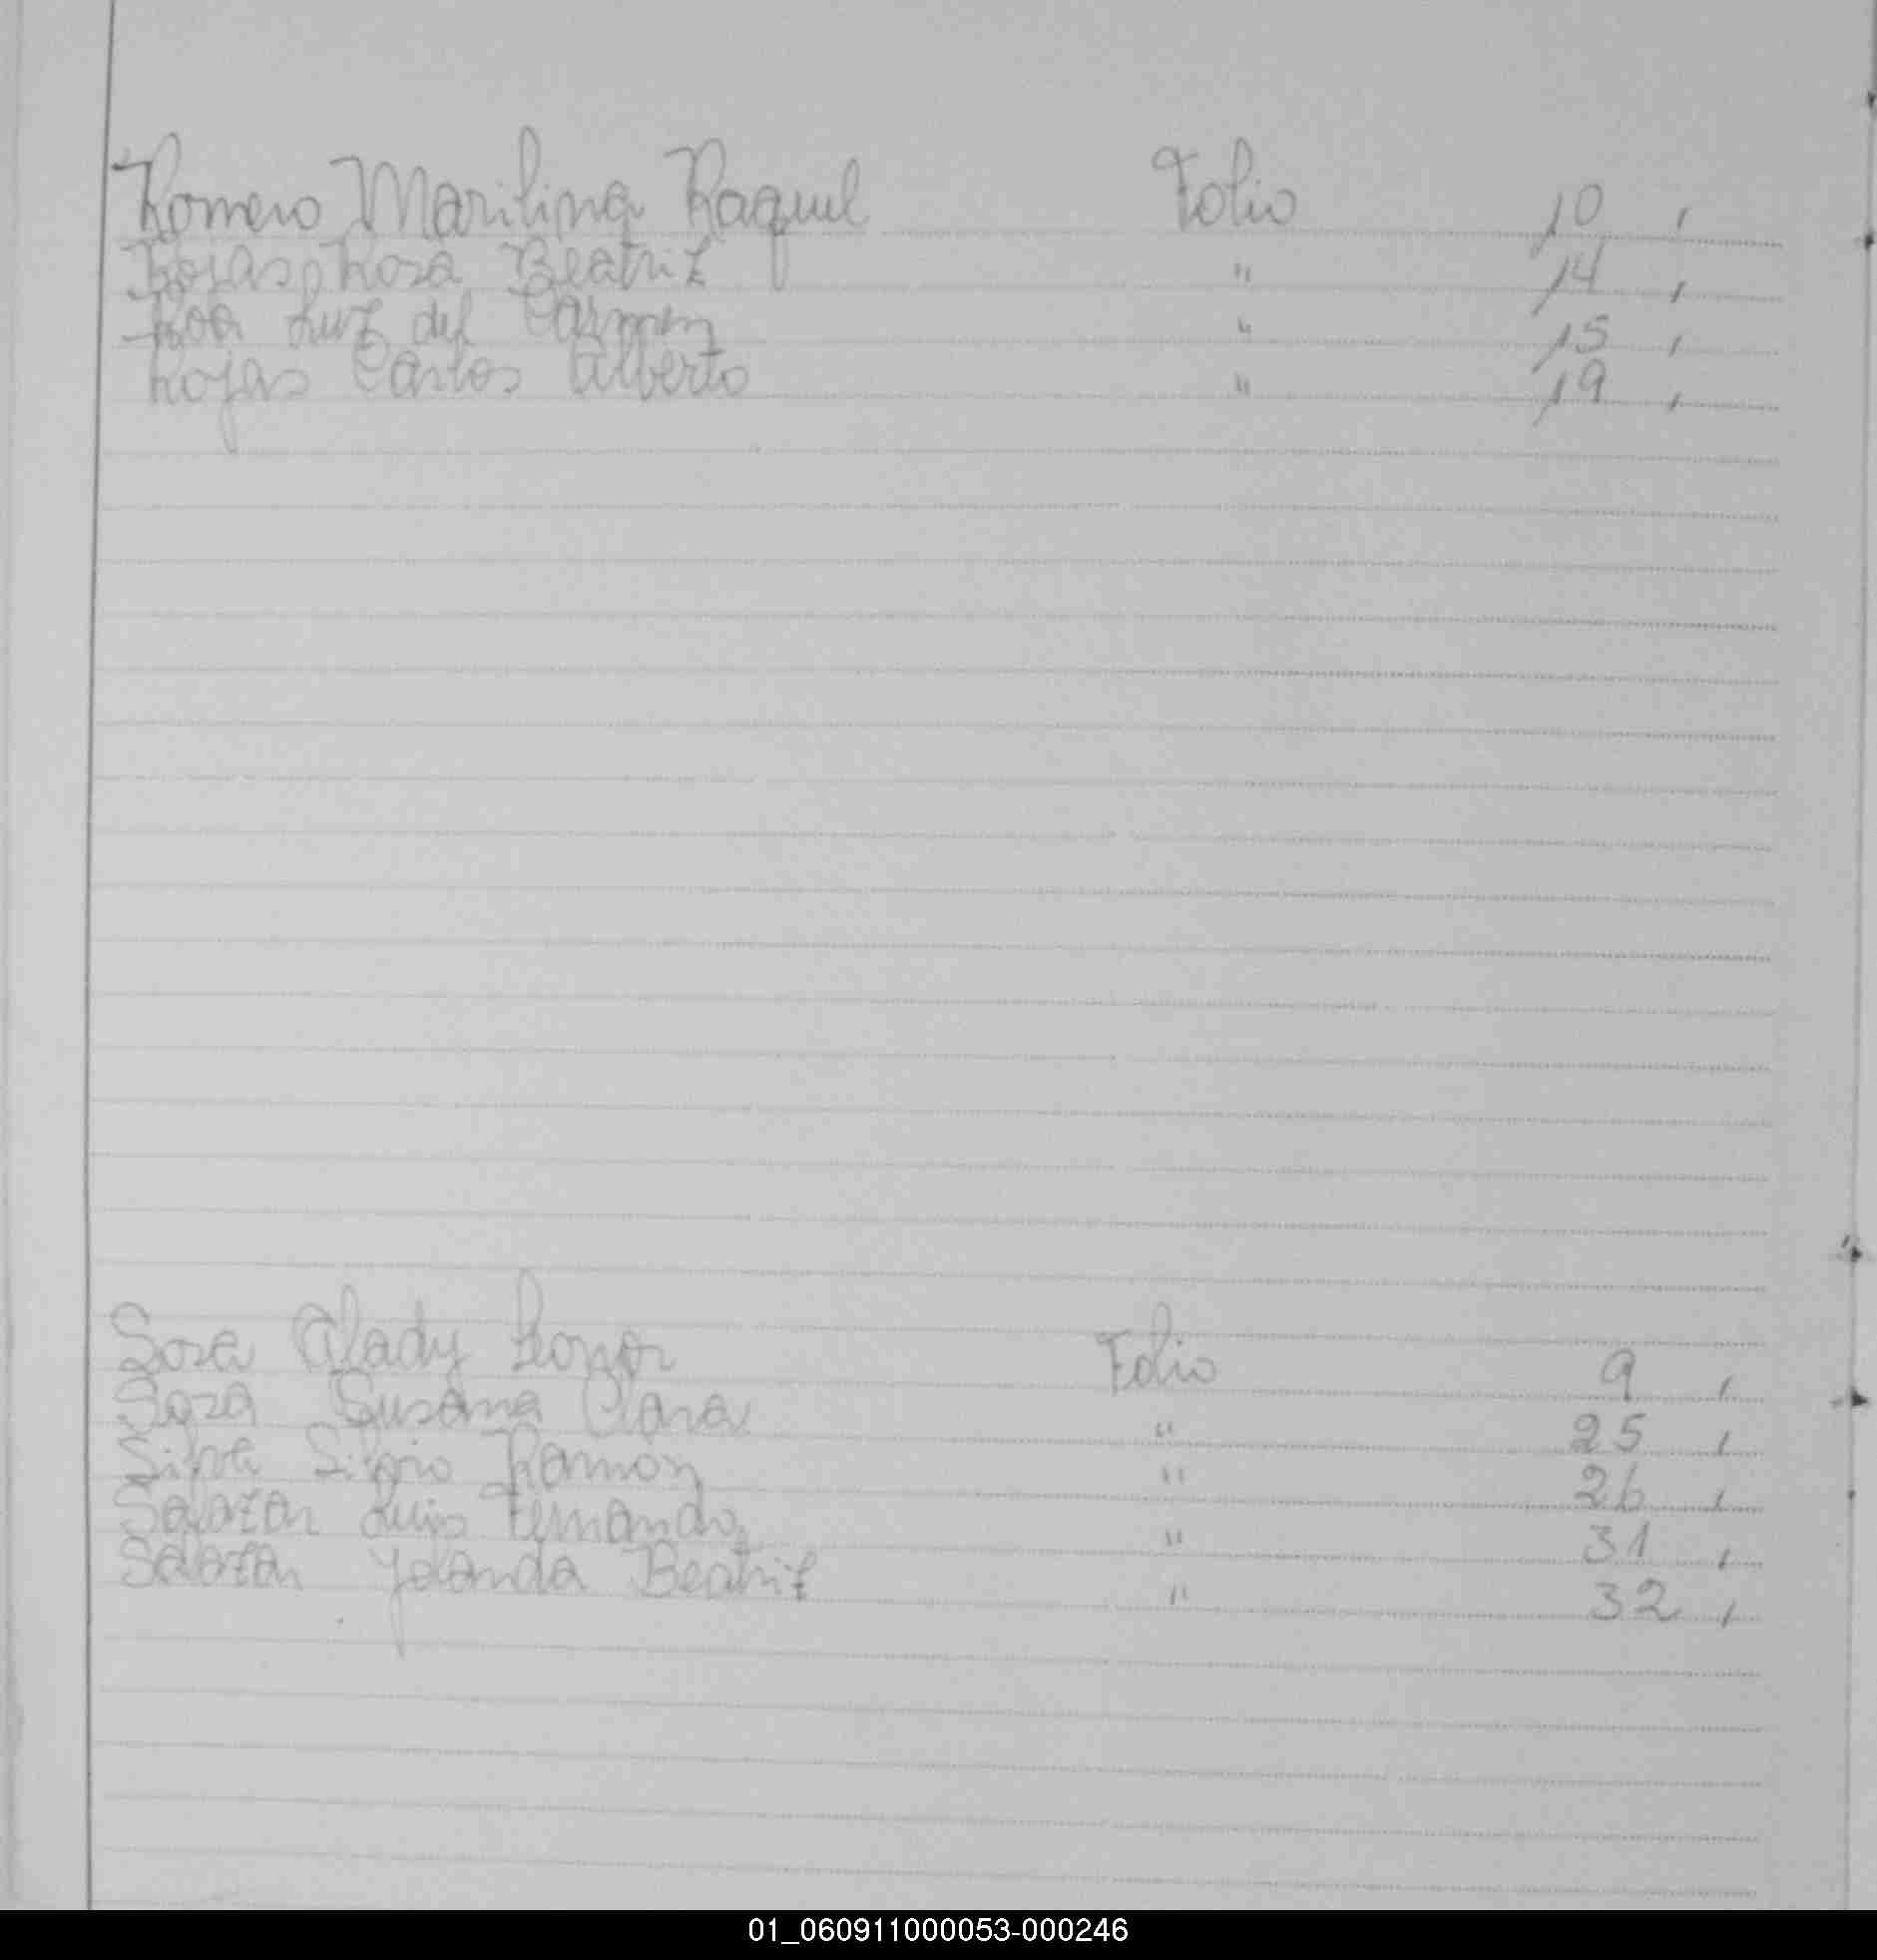 Romero Marilina Raquel Folio 10,
Rojas, Rosa Beatriz " 14,
Roa Luz del Carmen " 15,
Rojas Carlos Alberto " 19,
Sosa Glady Leonor Folio 9,
Sosa Susana Clara " 25,
Silva Silvio Ramon " 26,
Salazar Luis Fernando, " 31,
Salazar Yolanda Beatriz " 32,
01_060911000053-000246